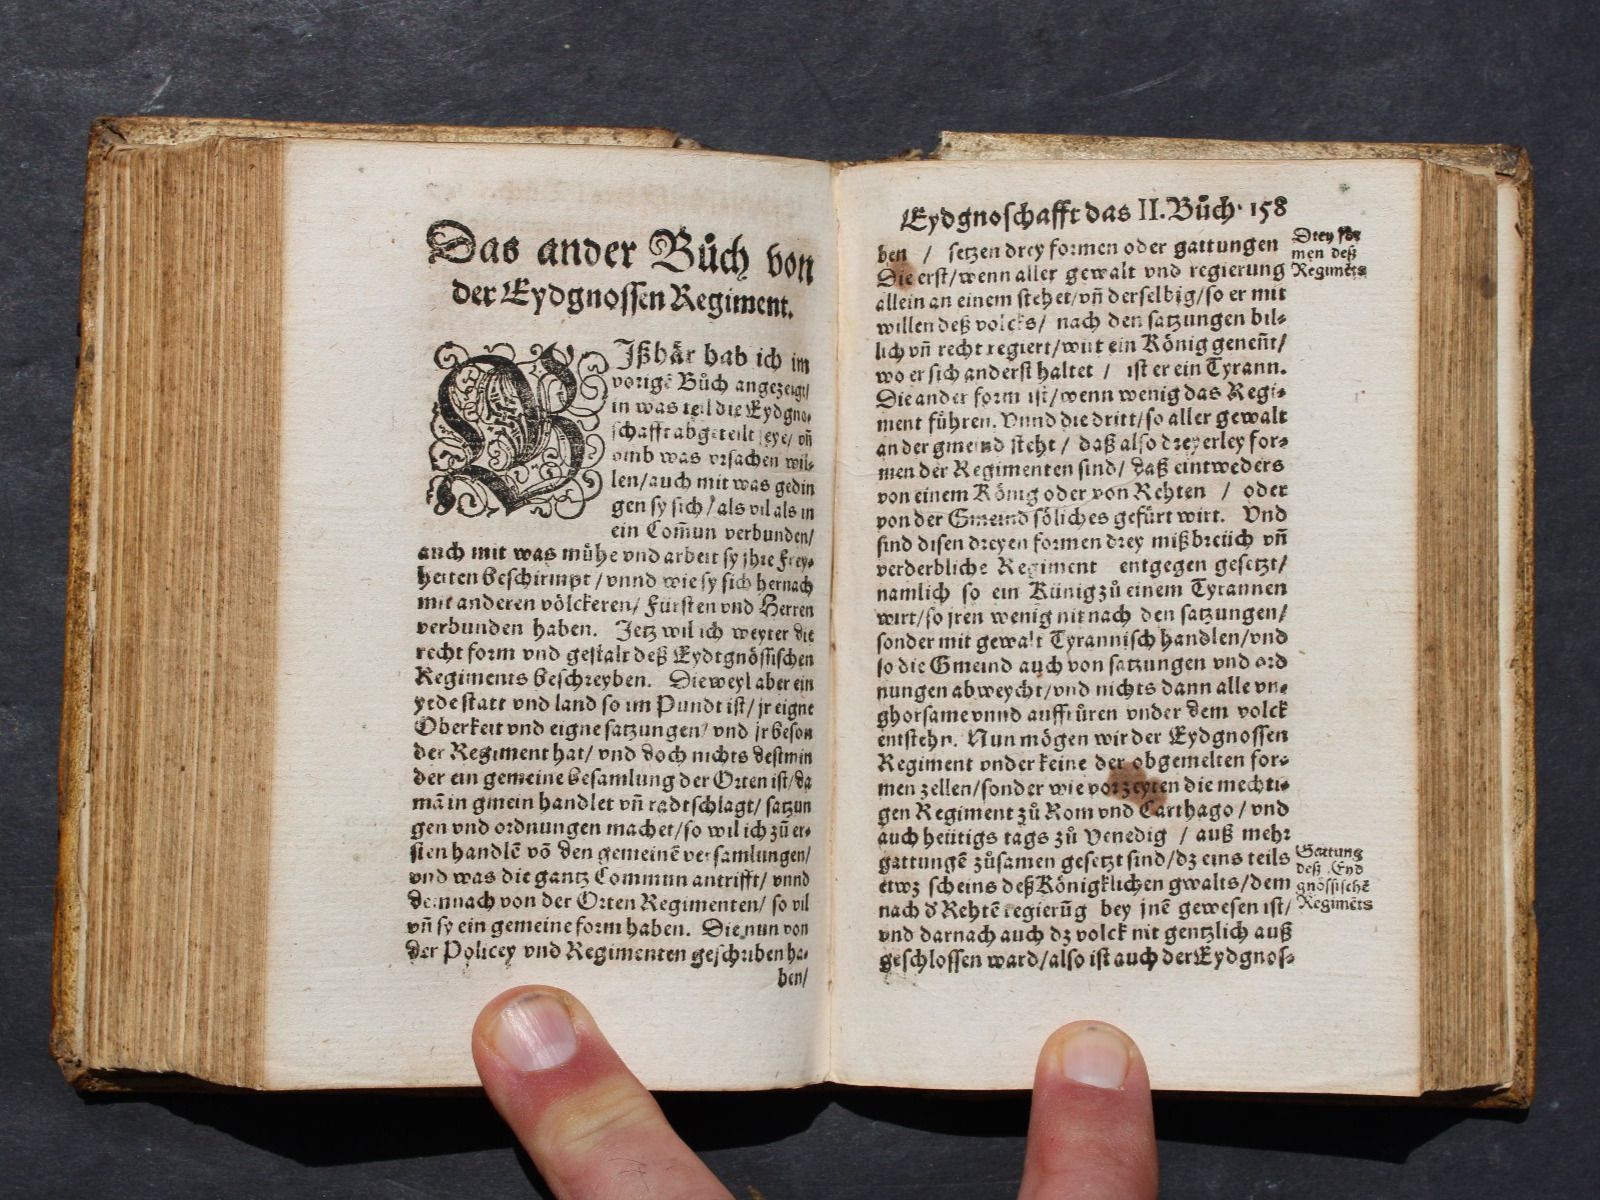 Das ander Bůch von
der Eydgnossen Regiment.
BIßhär hab ich im
vorigẽ Bůch angezeigt/
in was teil die Eydgno-
schafft abgeteilt seye/ vñ
vmb was vrsachen wil-
len/ auch mit was gedin
gen sy sich/ als vil als in
ein Com̃un verbunden/
auch mit was mühe vnd arbeit sy jhre Frey-
heiten beschirmpt/ vnnd wie sy sich hernach
mit anderen völckeren/ Fürsten vnd Herren
verbunden haben. Jetz wil ich weyter die
recht form vnd gestalt deß Eydtgnössischen
Regiments beschreyben. Die weyl aber ein
yede statt vnd land so im Pundt ist/ jr eigne
Oberkeit vnd eigne satzungen/ vnd jr beson
der Regiment hat/ vnd doch nichts destmin
der ein gemeine besamlung der Orten ist/ da
mã in gmein handlet vñ radtschlagt/ satzun
gen vnd ordnungen machet/ so wil ich zů er-
sten handlẽ võ den gemeinẽ versamlungen/
vnd was die gantz Commun antrifft/ vnnd
demnach von der Orten Regimenten/ so vil
vñ sy ein gemeine form haben. Die nun von
der Policey vnd Regimenten geschriben ha-
ben/
Eydgnoschafft das II. Bůch. 158
ben / setzen drey formen oder gattungen
Die erst/ wenn aller gewalt vnd regierung
allein an einem stehet/ vñ derselbig/ so er mit
willen deß volcks/ nach den satzungen bil-
lich vñ recht regiert/ wirt ein König genent̃/
wo er sich anderst haltet / ist er ein Tyrann.
Die ander form ist/ wenn wenig das Regi-
ment führen. Vnnd die dritt/ so aller gewalt
an der gmeind steht/ daß also dreyerley for-
men der Regimenten sind/ daß eintweders
von einem König oder von Rehten / oder
von der Gmeind söliches gefürt wirt. Vnd
sind disen dreyen formen drey mißbreüch vñ
verderbliche Regiment entgegen gesetzt/
namlich so ein Künig zů einem Tyrannen
wirt/ so jren wenig nit nach den satzungen/
sonder mit gewalt Tyrannisch handlen/ vnd
so die Gmeind auch von satzungen vnd ord
nungen abweycht/ vnd nichts dann alle vn-
ghorsame vnnd auffrůren vnder dem volck
entstehn. Nun mögen wir der Eydgnossen
Regiment vnder keine der obgemelten for-
men zellen/ sonder wie vorzeyten die mechti-
gen Regiment zů Rom vnd Carthago/ vnd
auch heütigs tags zů Venedig / auß mehr
gattungẽ zůsamen gesetzt sind/ dz eins teils
etwz scheins deß Königklichen gwalts/ dem
nach d' Rehtẽ regierũg bey jnẽ gewesen ist/
vnd darnach auch dz volck nit gentzlich auß
geschlossen ward/ also ist auch der Eydgnos-
Drey for
men deß
Regimẽts
Gattung
deß Eyd
gnössischẽ
Regimẽts